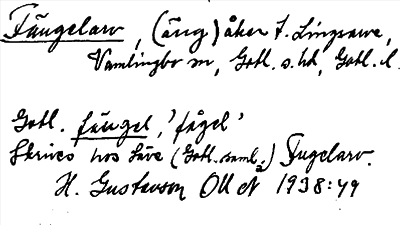 Fängelarv, (äng) åker t. Lingsarve,
Vamlingbo sn, Gotl. s. hd, Gotl. l.
Gotl. fängel, 'fågel'
Skrives hos Säve (Gotl. saml. 2) Fugelarv.
H. Gustavson OUÅ 1938:49